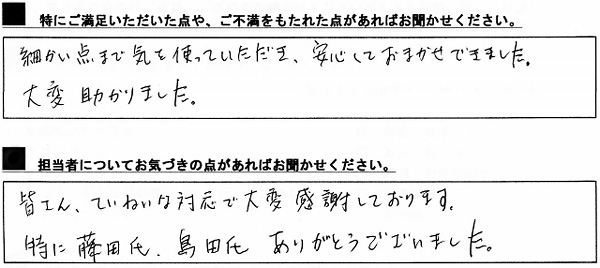 特にご満足いただいた点や、ご不満をもたれた点があればお聞かせください。
細かい点まで気を使っていただき、安心しておまかせできました。
大変助かりました。
担当者についてお気づきの点があればお聞かせください。
皆さん、ていねいな対応で大変感謝しております。
特に藤田氏、島田氏 ありがとうございました。